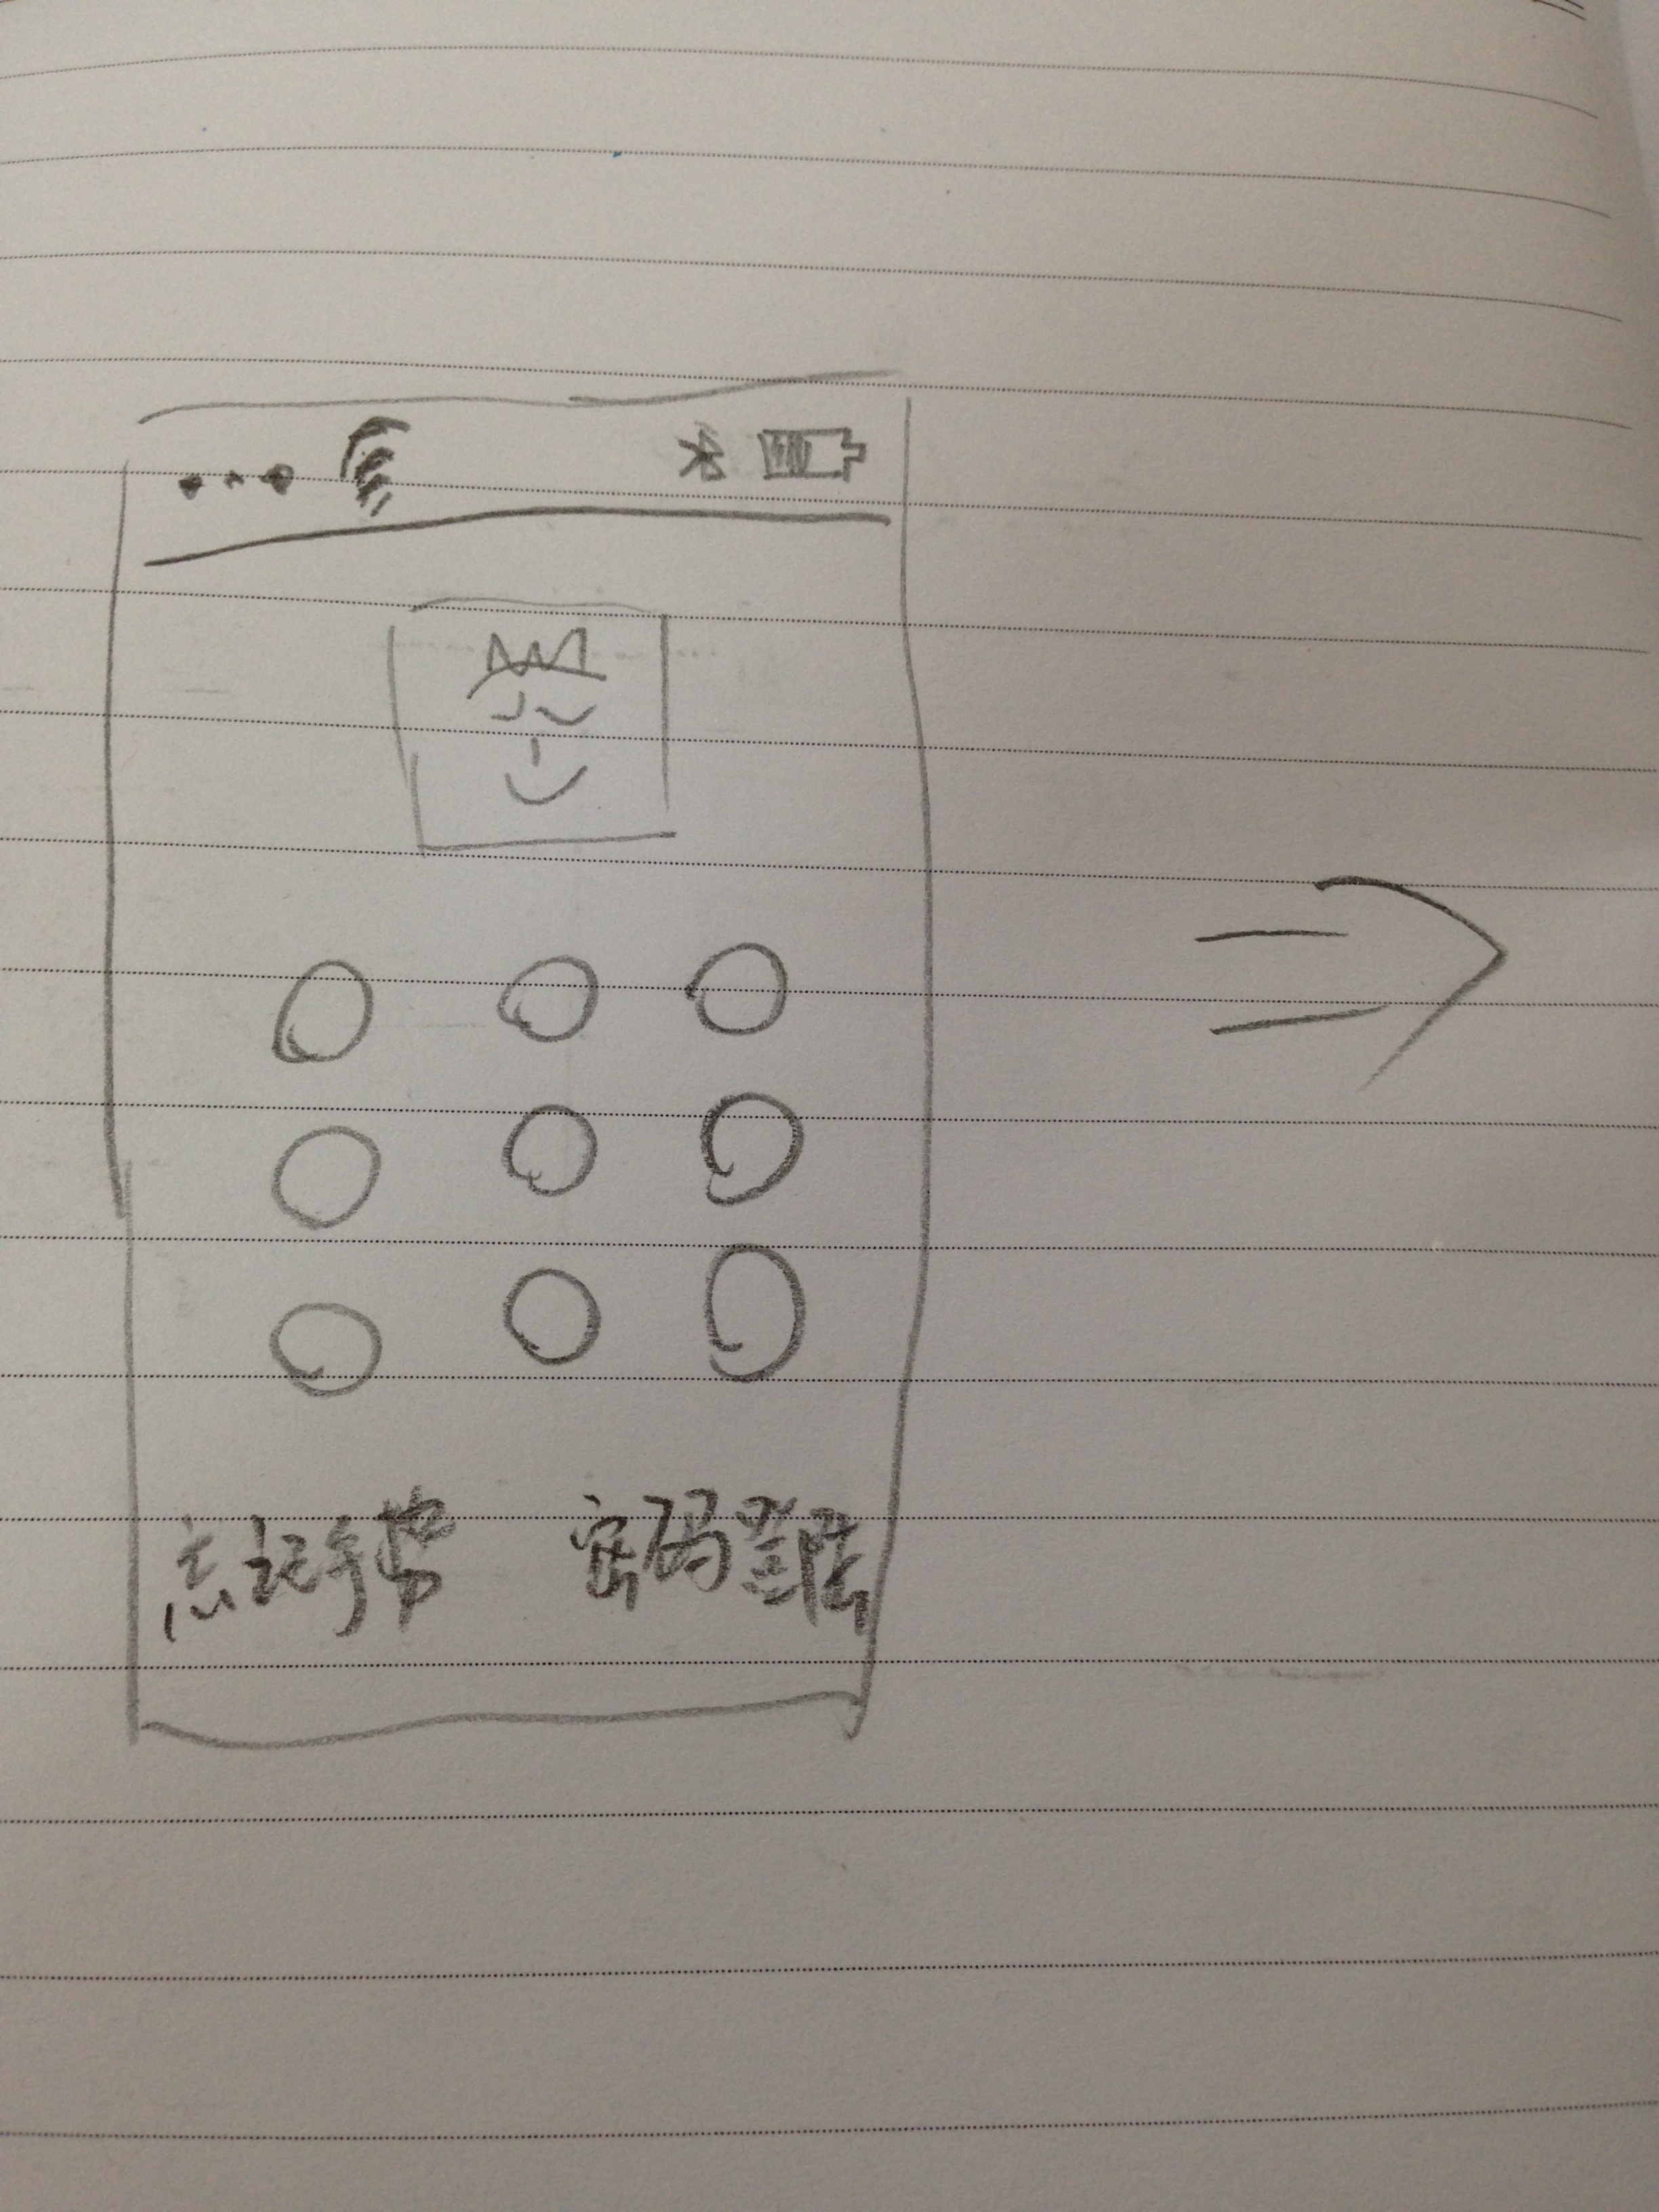 忘记手势 密码登陆